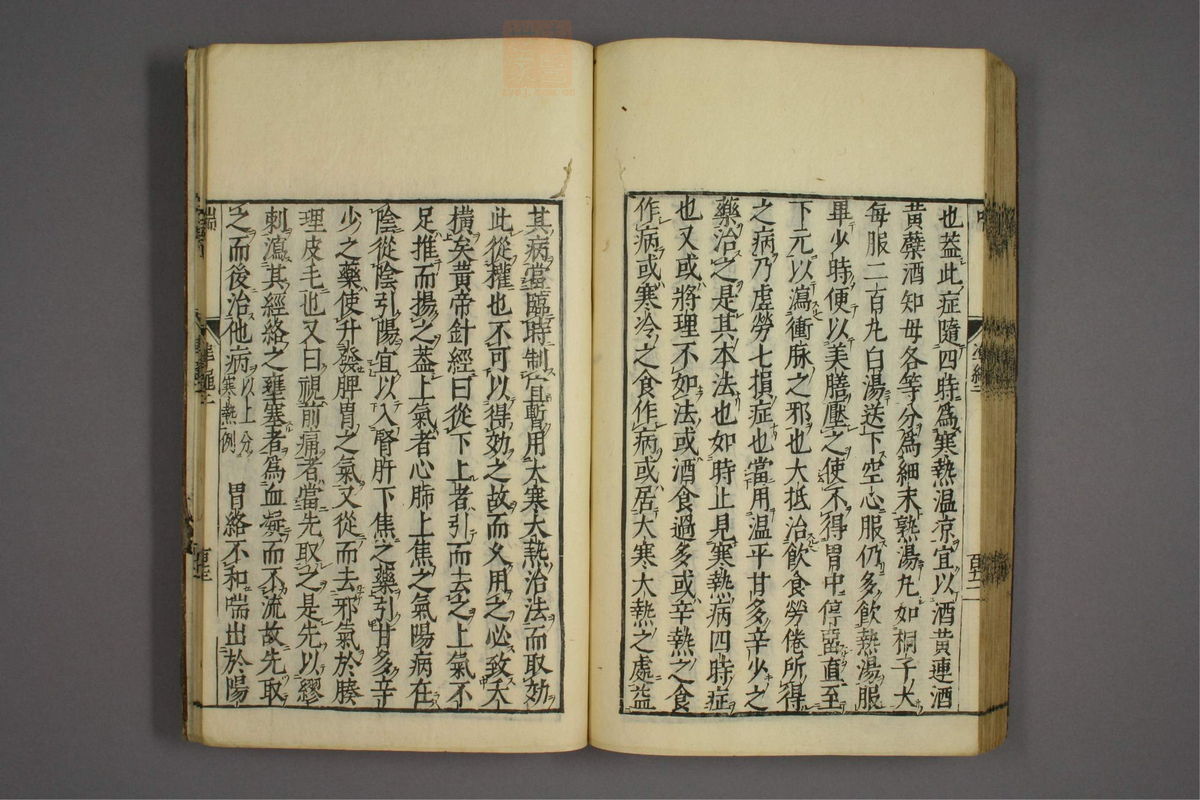 也蓋此症隨四時爲寒熱温凉宜以酒黄連酒
黄蘗酒知母各等分爲細末熟湯丸如桐子大
每服二百丸白湯送下空心服仍多飲熱湯服
畢少時便以美膳壓之使不得胃中停畱直至
下元以瀉衝脉之邪也大抵治飲食勞倦所得
之病乃虚勞七損症也當用温平甘多辛少之
藥治之是其本法也如時止見寒熱病四時症
也又或將理不如法或酒食過多或辛熱之食
作病或寒冷之食作病或居大寒大熱之處益
其病當臨時制宜暫用大寒大熱治法而取効
此從權也不可以得効之故而久用之必致大
横矣黄帝針經曰從下上者引而去之上氣不
足推而揚之蓋上氣者心肺上焦之氣陽病在
陰從陰引陽宜以入腎肝下焦之藥引甘多辛
少之藥使升發脾胃之氣又從而去邪氣於腠
理皮毛也又曰視前痛者當先取之是先以繆
刺瀉其經絡之壅塞者爲血凝而不流故先取
之而後治他病以上分寒熱例 胃絡不和喘出於陽